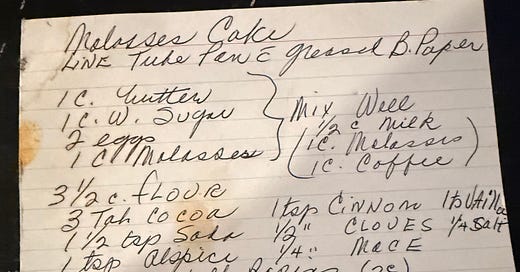 Molasses Cake
LINE Tube Pan c̄ greased B. Paper
1 c. butter
1 c. W. Sugar
2 eggs
1 c Molasses
Mix Well
1/2 c milk
1c. Molasses
1c. Coffee
3 1/2 c. flour
3 Tab Cocoa
1 1/2 tsp Soda
1 tsp Alspice
1 tsp Cinnom
1/2 " CLOVES
1/4 " MACE
1 ts VAnilla
1/4 Salt
(2c)